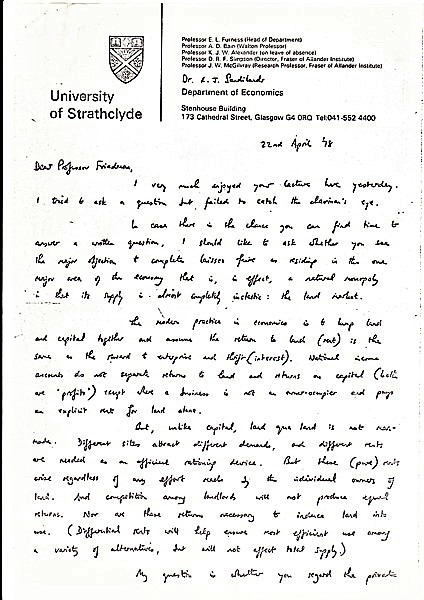 Professor E. L. Furness (Head of Department)
Professor A. D. Bain (Walton Professor)
Professor K. J. W. Alexander (on leave of absence)
Professor D. R. F. Simpson (Director, Fraser of Allander Institute)
Professor J. W. McGilvray (Research Professor, Fraser of Allander Institute)
Dr. R. J. Sandilands
Department of Economics
University
of Strathclyde
Stenhouse Building
173 Cathedral Street, Glasgow G4 0RQ Tel:041-552 4400
22nd April '78
Dear Professor Friedman,
I very much enjoyed your lecture here yesterday.
I tried to ask a question but failed to catch the chairman's eye.
In case there is the chance you can find time to
answer a written question, I should like to ask whether you see
the major objection to complete laissez faire as residing in the one
major area of the economy that is, in effect, a natural monopoly
in that its supply is almost completely inelastic: the land market.
The modern practice in economics is to lump land
and capital together and assume the return to land (rent) is the
same as the reward to enterprise and thrift (interest). National income
accounts do not separate returns to land and returns on capital (both
are "profits") except where a business is not an owner-occupier and pays
an explicit rent for land alone.
But, unlike capital, land qua land is not man-
made. Different sites attract different demands, and different rents
are needed as an efficient rationing device. But these (pure) rents
arise regardless of any effort made by the individual owners of
land. And competition among landlords will not produce equal
returns. Nor are these returns necessary to induce land into
use. (Differential rents will help ensure most efficient use among
a variety of alternatives, but will not affect total supply.)
My question is whether you regard the private